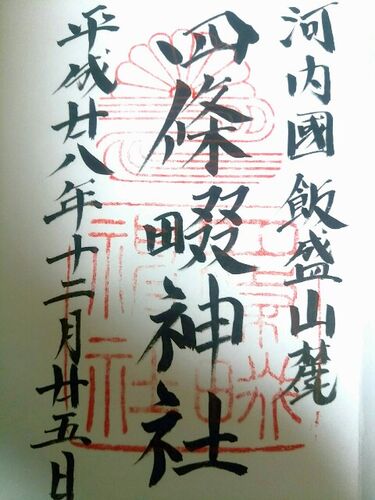 河内國飯盛山麓
四條畷神社
平成廿八年十二月廿五日